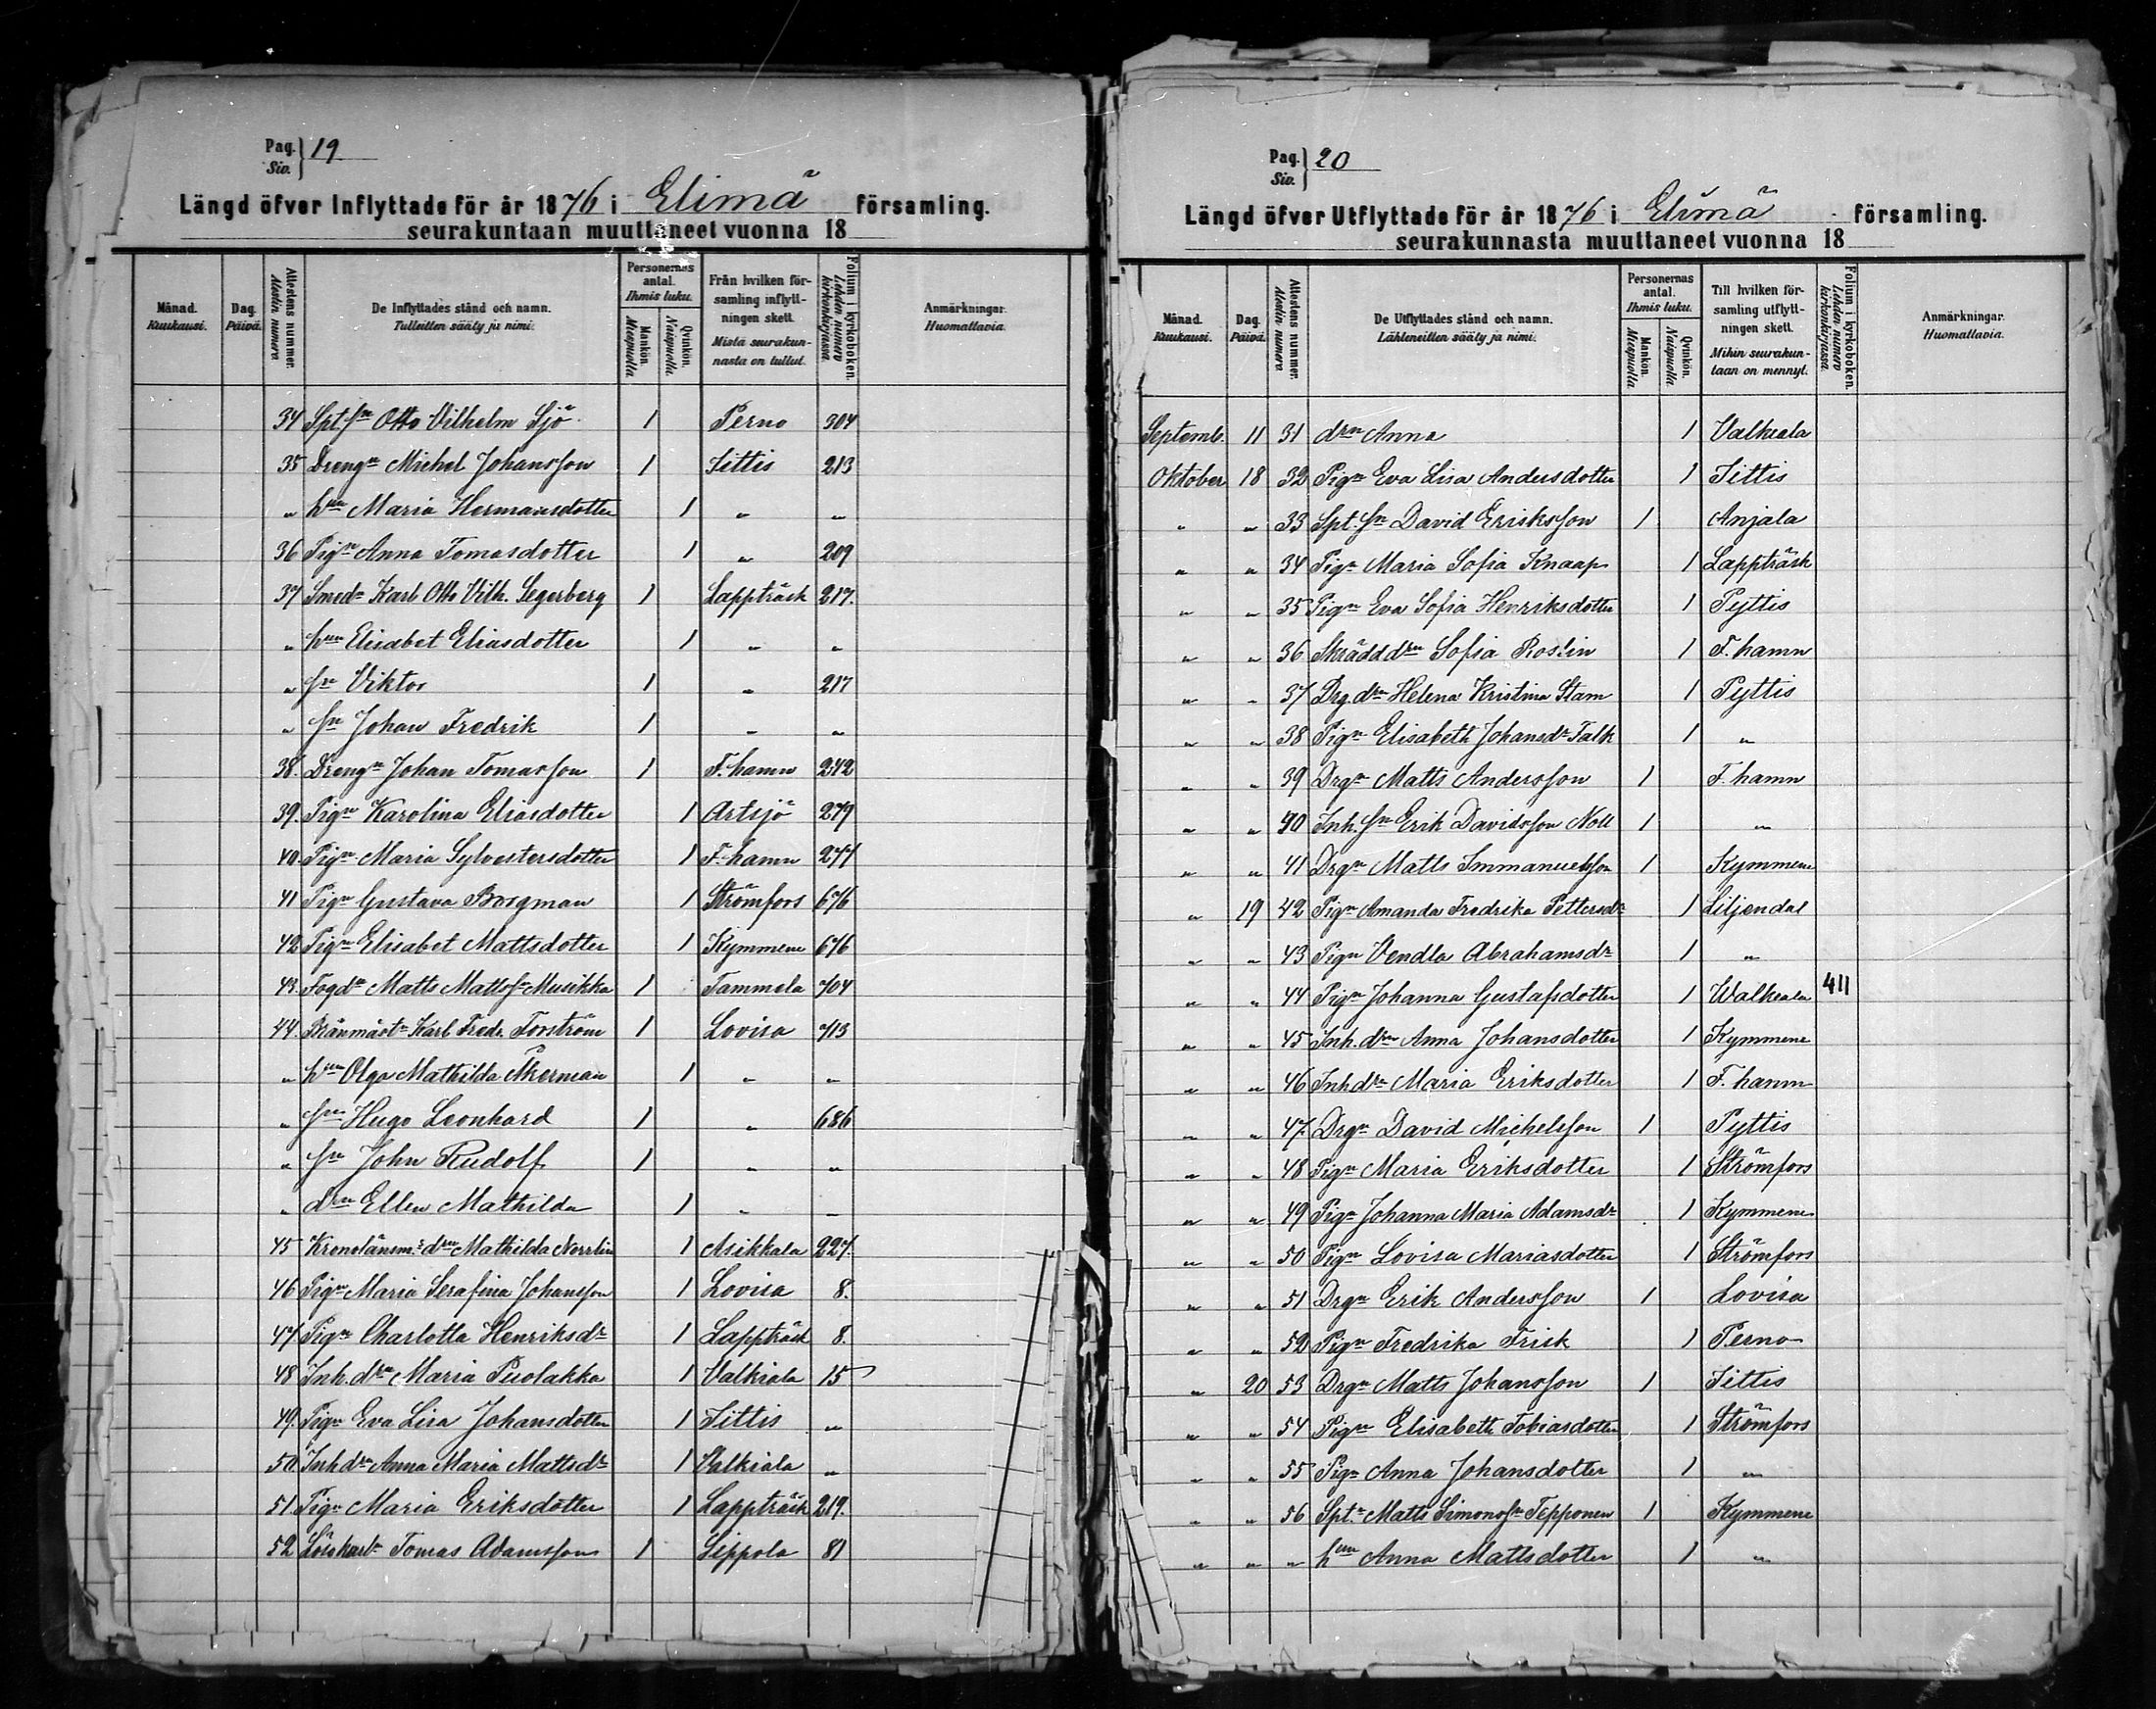 Pag. 19
Siv.
Längd öfver Inflyttade för år 1876 i Elimä församling.
seurakuntaan muuttaneet vuonna 18
Månad. Kuukausi.
Dag. Päivä.
Attestens nummer. Atestin numero
De Inflyttades stånd och namn. Tulleitten sääty ja nimi.
Personernas antal. Ihmis luku.
Mankön. Miespuolia
Qvinkön. Naispuolia.
Från hvilken församling inflyttningen skett. Mistä seurakunnasta on tullut.
Folium i kyrkoboken. Lehden numero kirkonkirjassa.
Anmärkningar. Huomattavia.
34 Spt. sn Otto Vilhelm Sjö 1 Perno 304
35 Drengn Michel Johansson 1 Iittis 213
" hun Maria Hermansdotter 1 " "
36 Pign Anna Tomasdotter 1 " 209
37 Smedn Karl Otto Vilh. Segerberg 1 Lappträsk 217.
" hun Elisabet Eliasdotter 1 " "
" sn Viktor 1 " 217
" sn Johan Fredrik 1 " "
38. Drengn Johan Tomasson 1 F. hamn 242
39. Pign Karolina Eliasdotter 1 Artsjö 279
40. Pign Maria Sylvestersdotter 1 F. hamn 277
41 Pign Gustava Borgman 1 Strömfors 676
42 Pign Elisabet Mattsdotter 1 Kymmene 676
43. Fogdn Matts Mattss Musikka 1 Tammela 704
44. Bränmästn Karl Fredr. Forström 1 Lovisa 713
" hun Olga Mathilda Åkerman 1 " "
" sn Hugo Leonhard 1 " 686
" sn John Rudolf 1 " "
" drn Ellen Mathilda 1 " "
45 Kronolänsm:s drn Mathilda Norrlin 1 Asikkala 227.
46 Pign Maria Serafina Johansson 1 Lovisa 8.
47. Pign Charlotta Henriksdr 1 Lappträsk 8.
48 Inh. drn Maria Puolakka 1 Valkiala 15
49. Pign Eva Lisa Johansdotter 1 Iittis "
50. Inh drn Anna Maria Mattsdr 1 Valkiala "
51. Pign Maria Eriksdotter 1 Lappträsk 219.
52 Löskarln Tomas Adamsson 1 Sippola 81
Pag. 20
Siv.
Längd öfver Utflyttade för år 1876 i Elimä församling.
seurakunnasta muuttaneet vuonna 18
Månad. Kuukausi.
Dag. Päivä.
Attestens nummer. Atestin numero
De Utflyttades stånd och namn. Lähteneitten sääty ja nimi.
Personernas antal. Ihmis luku.
Mankön. Miespuolia
Qvinkön. Naispuolia
Till hvilken församling utflyttningen skett. Mihin seurakuntaan on mennyt.
Folium i kyrkoboken. Lehden numero kirkonkirjassa.
Anmärkningar. Huomattavia.
Septemb. 11 31 drn Anna 1 Valkeala
Oktober 18 32 Pign Eva Lisa Andersdotter 1 Iittis
" " 33 Spt. sn David Eriksson 1 Anjala
" " 34 Pign Maria Sofia Knaap 1 Lappträsk
" " 35 Pign Eva Sofia Henriksdotter 1 Pyttis
" " 36 Skrädd drn Sofia Roslin 1 F. hamn
" " 37 Drg. drn Helena Kristina Stam 1 Pyttis
" " 38 Pign Elisabeth Johansdr Falk 1 "
" " 39 Drgn Matts Andersson 1 F. hamn
" " 40 Inh. sn Erik Davidsson Noll 1 "
" " 41 Drgn Matts Immanuelsson 1 Kymmene
" 19 42 Pign Amanda Fredrika Pettersdr 1 Liljendal
" " 43 Pign Vendla Abrahamsdr 1 "
" " 44 Pign Johanna Gustafsdotter 1 Walkeala 411
" " 45 Inh. drn Anna Johansdotter 1 Kymmene
" " 46 Inh drn Maria Eriksdotter 1 F. hamn
" " 47. Drgn David Michelsson 1 Pyttis
" " 48 Pign Maria Eriksdotter 1 Strömfors
" " 49 Pign Johanna Maria Adamsdr 1 Kymmene
" " 50 Pign Lovisa Mariasdotter 1 Strömfors
" " 51 Drgn Erik Andersson 1 Lovisa
" " 52 Pign Fredrika Frisk 1 Perno
" 20 53 Drgn Matts Johansson 1 Iittis
" " 54 Pign Elisabeth Tobiasdotter 1 Strömfors
" " 55 Pign Anna Johansdotter 1 "
" " 56 Spt.n Matts Simonssn Tepponen 1 Kymmene
" " " hun Anna Mattsdotter 1 "